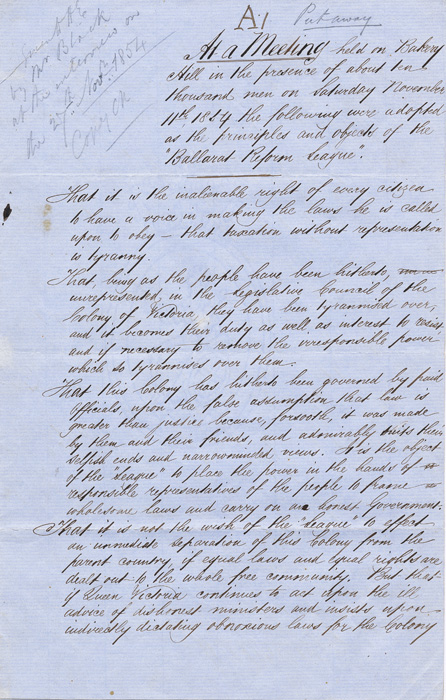 A1
Put away
by Mr Black
at the interview on
the 27th Novr. 1854
At a Meeting held on Bakery
Hill in the presence of about ten
thousand men on Saturday November
11th 1854 the following were adopted
as the principles and objects of the
"Ballarat Reform League".
That it is the inalienable right of every citizen
to have a voice in making the laws he is called
upon to obey - that taxation without representation
is tyranny.
That, being as the people have been hitherto,
unrepresented in the Legislative Council of the
Colony of Victoria, they have been tyrannised over,
and it becomes their duty as well as interest to resist
and if necessary to remove the irresponsible power
which so tyrannises over them.
That this Colony has hitherto been governed by paid
Officials, upon the false assumption that law is
greater than justice because, forsooth, it was made
by them and their friends, and admirably suits their
selfish ends and narrowminded views. It is the object
of the "League" to place the power in the hands of
responsible representatives of the people to frame
wholesome laws and carry on an honest Government.
That it is not the wish of the "League" to effect
an immediate separation of this Colony from the
parent country, if equal laws and equal rights are
dealt out to the whole free community. But that
if Queen Victoria continues to act upon the ill
advice of dishonest ministers and insists upon
indirectly dictating obnoxious laws for the Colony